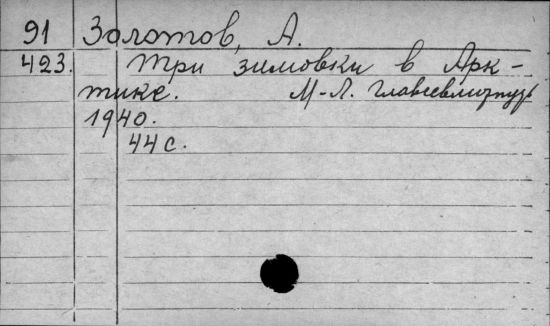 91 Золотов, А.
423. Три зимовки в Арк-
тике. М-Л. Главсевморпуть
1940.
44 с.